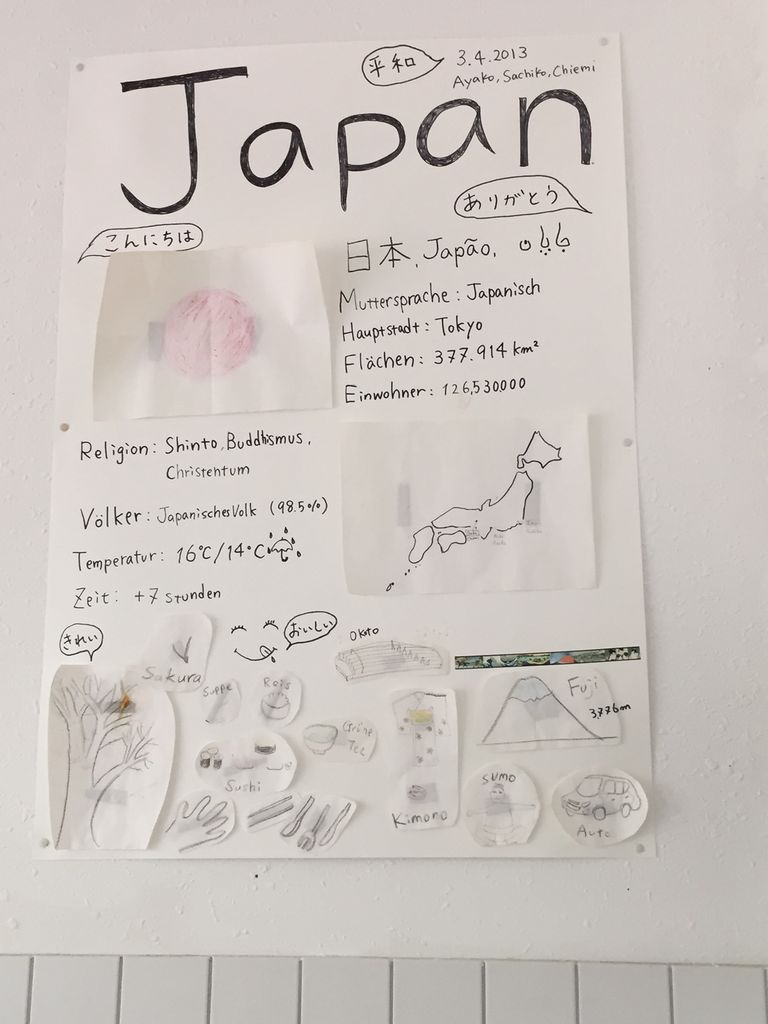 平和
3.4.2013
Ayako, Sachiko, Chiemi
Japan
ありがとう
こんにちは
日本, Japão,
Muttersprache : Japanisch
Hauptstadt : Tokyo
Flächen : 377.914 km²
Einwohner : 126,530,000
Religion : Shinto, Buddhismus,
Christentum
Völker : Japanisches Volk (98.5%)
Temperatur : 16°C/14°C
Zeit : +7 stunden
きれい
おいしい
Okoto
Sakura
Suppe
Reis
Fuji
3,776m
Grüne
Tee
Sushi
Kimono
SUMO
Auto